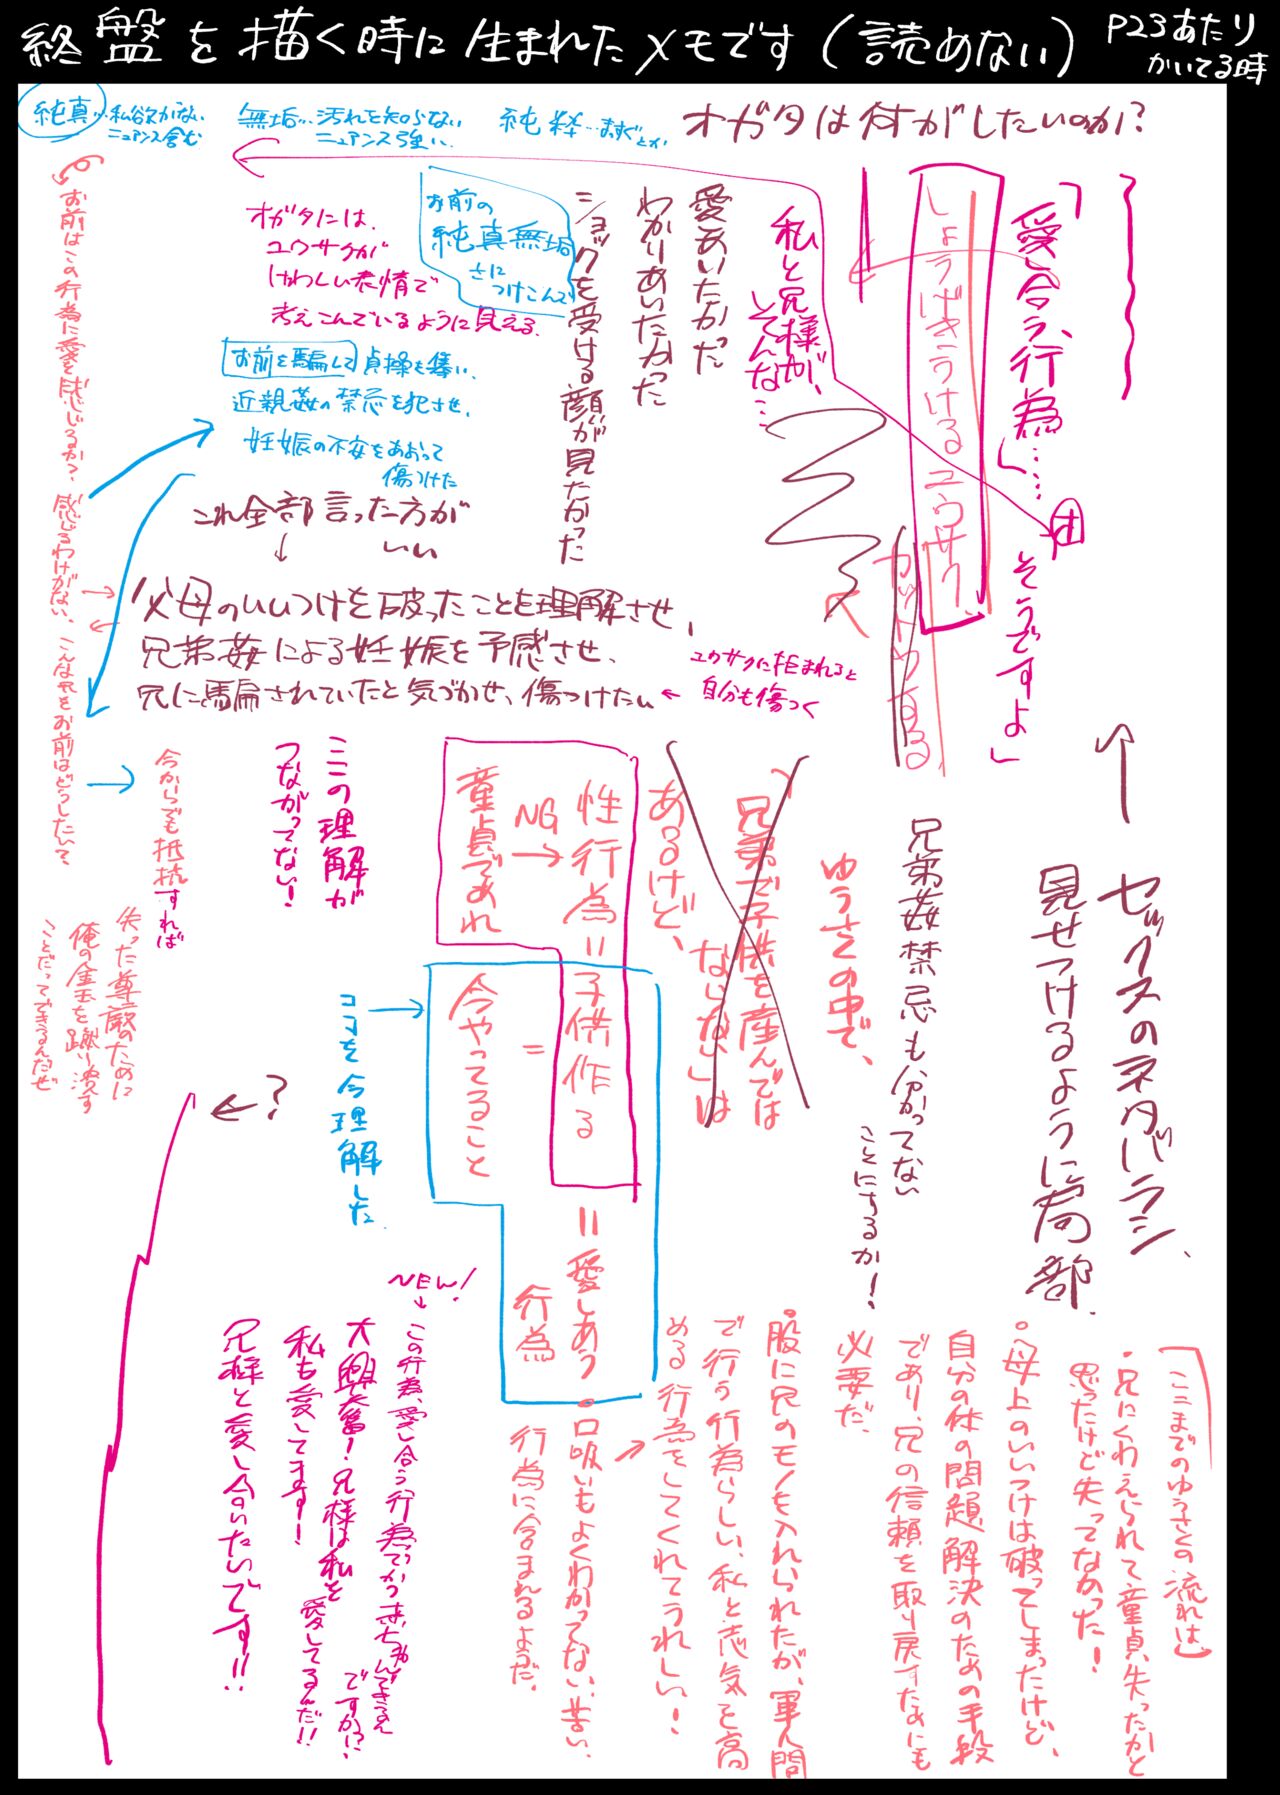 終盤を描く時に生まれたメモです(読めない)
P23あたり
かいてる時
純真…私欲がない
ニュアンス含む
無垢…汚れを知らない
ニュアンス強い
純粋…まっすぐとか
オガタは何がしたいのか?
「愛し合う、行為」……
そうですよ」
しょうげきうけるユウサク
カットかける
私と兄様が、
そんな…
愛あいたかった
わかりあいたかった
ショックを受ける顔が見たかった
お前の
純真無垢
さに
つけこんで
オガタには、
ユウサクが
けわしい表情で
考えこんでいるように見える。
お前を騙して貞操も奪い、
近親姦の禁忌を犯させ、
妊娠の不安をあおって
傷つけた
これ全部言った方が
いい
父母のいいつけを破ったことを理解させ、
兄弟姦による妊娠を予感させ、
兄に騙されていたと気づかせ、傷つけたい
ユウサクに拒まれると
自分も傷つく
お前はこの行為に愛を感じるか?感じるわけがない、こんな兄をお前はどうしたいって
今からでも抵抗すれば
失った尊厳のために
俺の金玉を蹴り潰す
ことだってできるんだぜ
?
セックスのネタバラシ、
見せつけるように局部、
兄弟姦禁忌も分かってない
ことにするか!
ゆうさくの中で、
「兄弟で子供を産んでは
ならない」は
あるけど、
性行為=子供作る
=愛しあう
行為
NG
童貞であれ
=
今やってること
ここの理解が
つながってない!
ココを今理解した
ここまでのゆうさくの流れは
・兄にくわえられて童貞失ったかと
思ったけど失ってなかった!
。母上のいいつけは破ってしまったけど、
自分の体の問題解決のための手段
であり、兄の信頼を取り戻すためにも
必要だ。
。股に兄のモノを入れられたが、軍人間
で行う行為らしい、私と志気を高
める行為をしてくれてうれしい!
。口吸いもよくわかってない、苦い、
行為に含まれるようだ。
NEW!
この行為、愛し合う行為でかつ赤ちゃんできるん
ですか!?、
大興奮!兄様は私を
愛してるんだ!!
私も愛してます!
兄様と愛し合いたいです!!